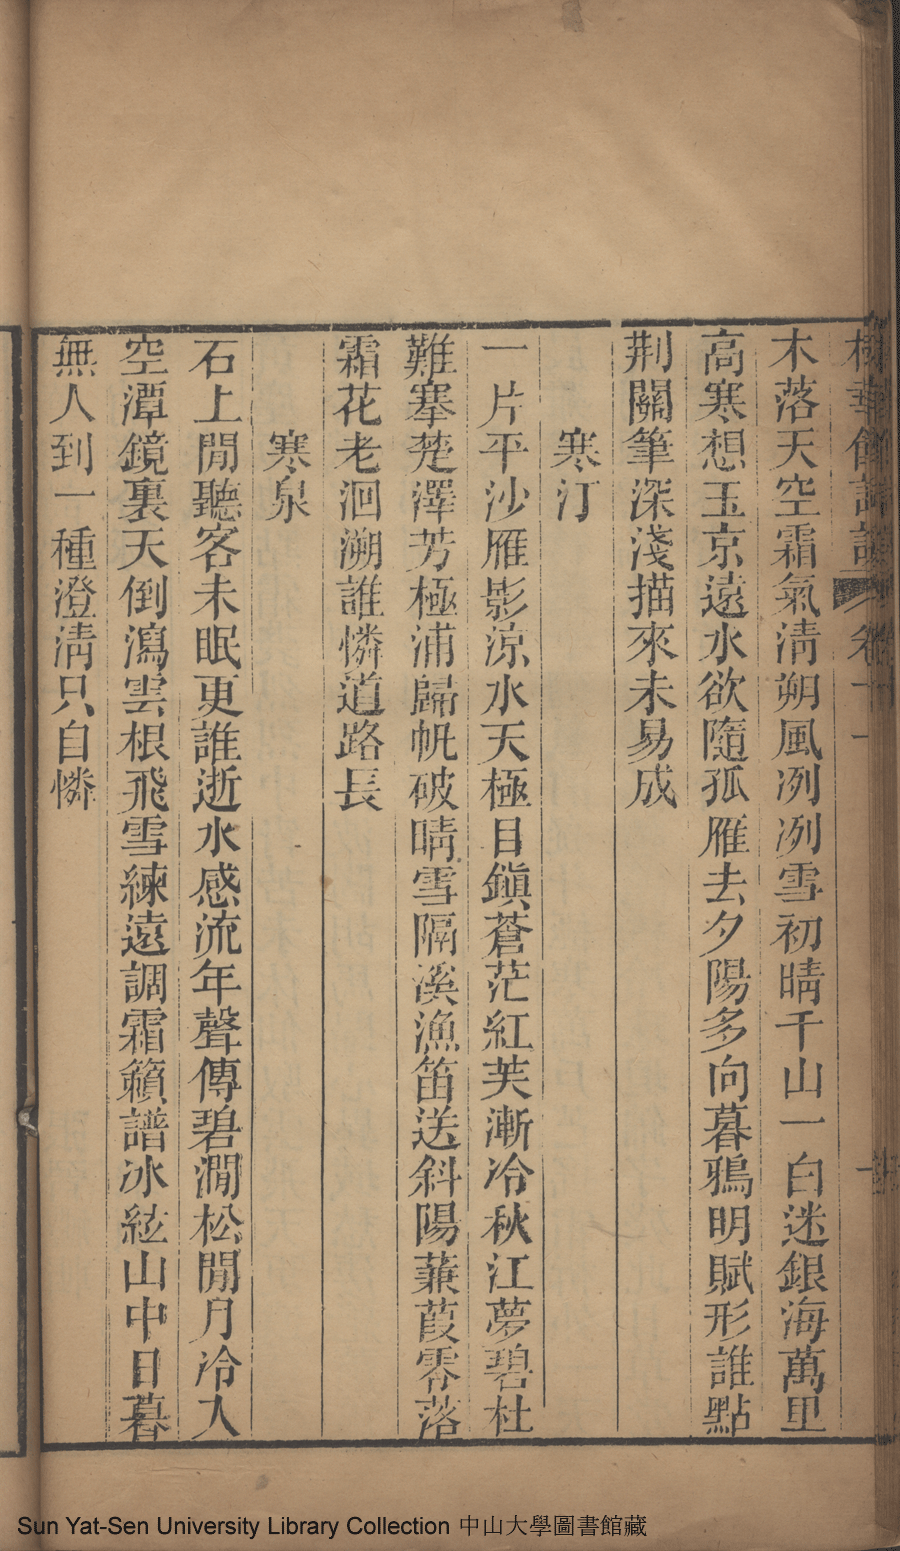 木落天空霜氣清朔風冽冽雪初晴千山一白迷銀海萬里
高寒想玉京遠水欲隨孤雁去夕陽多向暮鴉明賦形誰點
荆關筆深淺描來未易成
寒汀
一片平沙雁影凉水天極目鎭蒼茫紅芙漸冷秋江夢碧杜
難搴楚澤芳極浦歸帆破晴雪隔溪漁笛送斜陽蒹葭零落
霜花老洄溯誰憐道路長
寒泉
石上閒聽客未眠更誰逝水感流年聲傳碧澗松閒月冷入
空潭鏡裏天倒瀉雲根飛雪練遠調霜籟譜冰絃山中日暮
無人到一種澄清只自憐
Sun Yat-Sen University Library Collection 中山大學圖書館藏